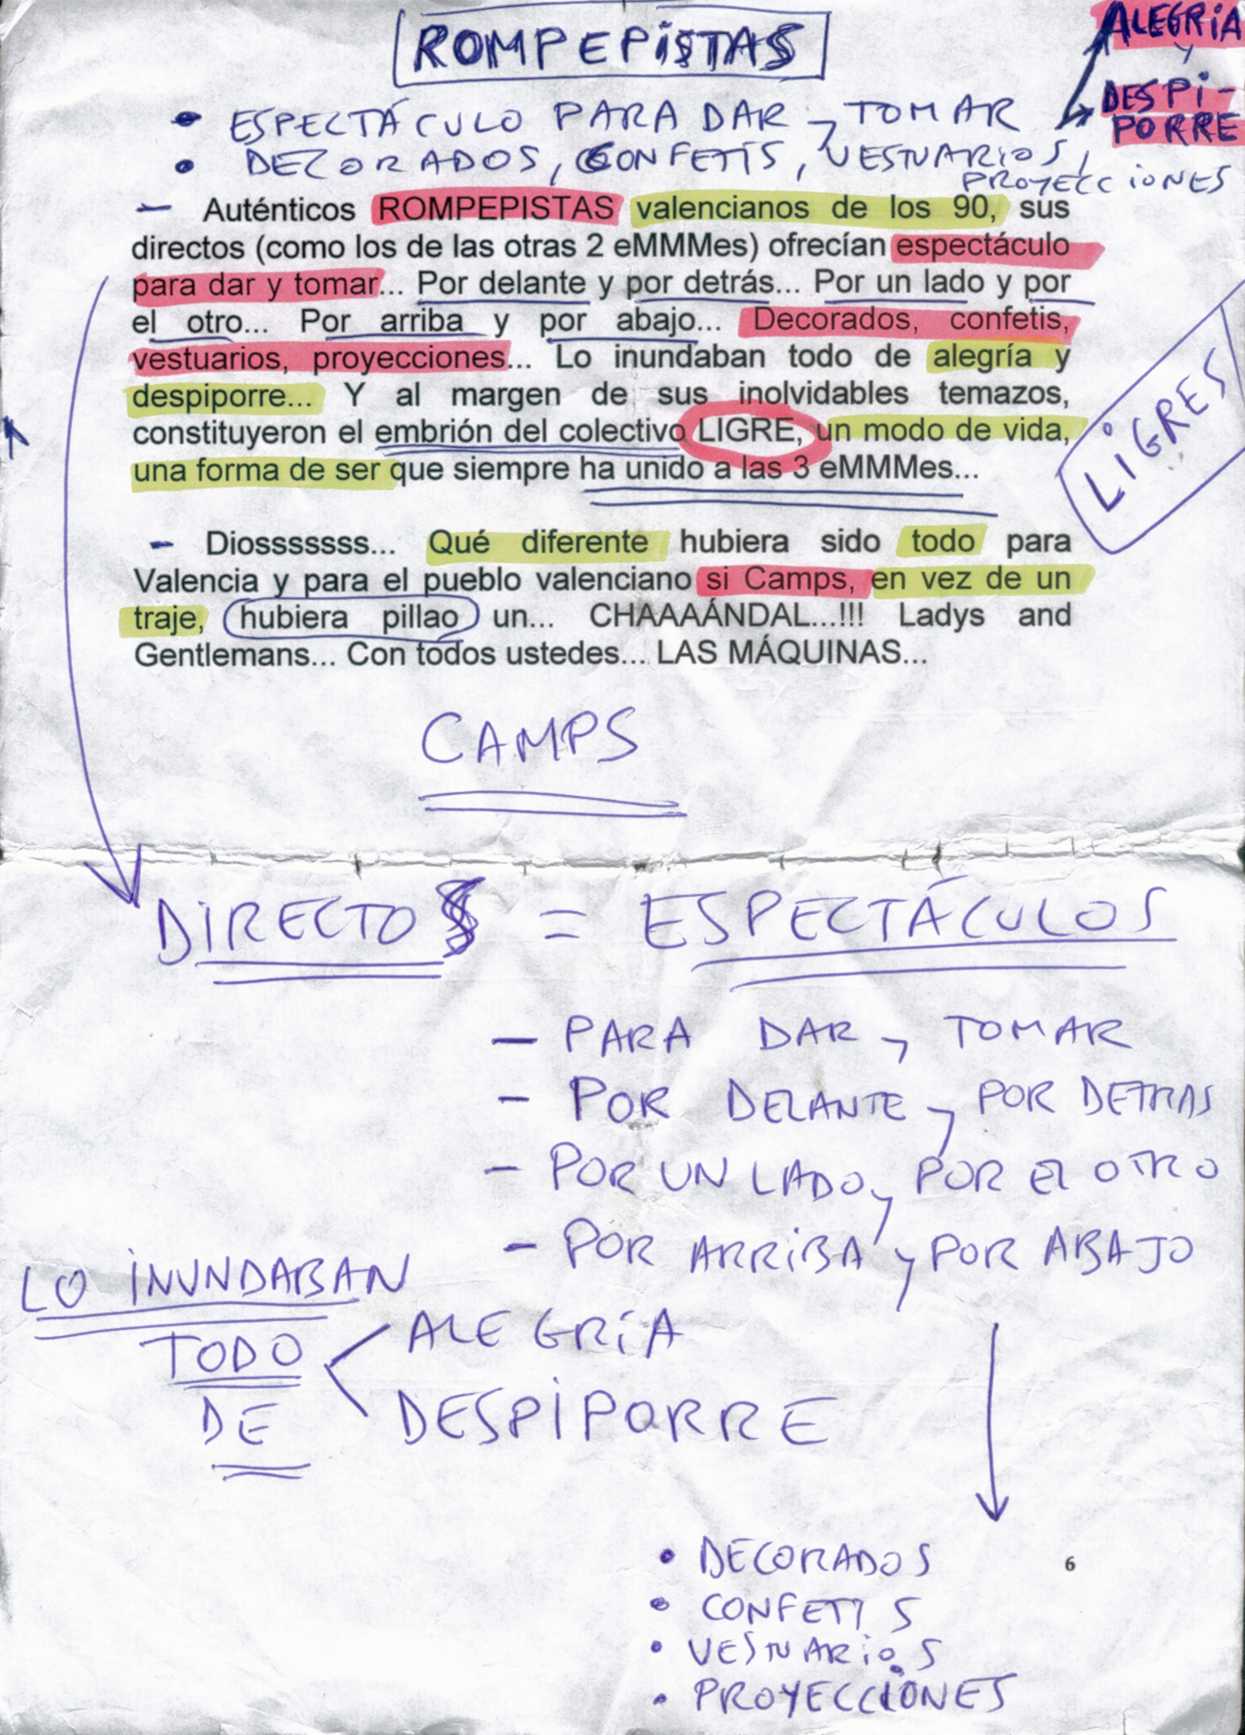 ROMPEPISTAS
ALEGRÍA
Y
DESPI-
PORRE
• ESPECTÁCULO PARA DAR y TOMAR
• DECORADOS, CONFETÍS, VESTUARIOS,
PROYECCIONES
– Auténticos ROMPEPISTAS valencianos de los 90, sus
directos (como los de las otras 2 eMMMes) ofrecían espectáculo
para dar y tomar... Por delante y por detrás... Por un lado y por
el otro... Por arriba y por abajo... Decorados, confetis,
vestuarios, proyecciones... Lo inundaban todo de alegría y
despiporre... Y al margen de sus inolvidables temazos,
constituyeron el embrión del colectivo LIGRE, un modo de vida,
una forma de ser que siempre ha unido a las 3 eMMMes...
LIGRES
– Diosssssss... Qué diferente hubiera sido todo para
Valencia y para el pueblo valenciano si Camps, en vez de un
traje, hubiera pillao un... CHAAAÁNDAL...!!! Ladys and
Gentlemans... Con todos ustedes... LAS MÁQUINAS...
CAMPS
DIRECTOS = ESPECTÁCULOS
– PARA DAR y TOMAR
– POR DELANTE y POR DETRAS
– POR UN LADO y POR El OTRO
– POR ARRIBA y POR ABAJO
LO INUNDABAN
TODO
DE
ALEGRÍA
DESPIPORRE
• DECORADOS
• CONFETIS
• VESTUARIOS
• PROYECCIONES
6